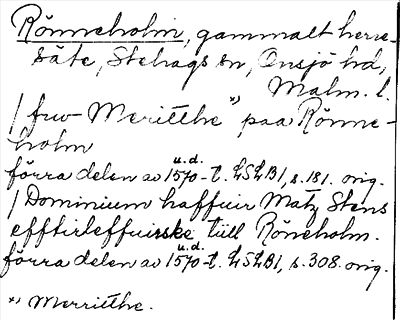 Rönneholm, gammalt herre-
säte, Stehags sn, Onsjö hd,
Malm. l.
/ fru Meritthe *) paa Rönne-
holm
u.d.
förra delen av 1570-t. LSLB1, s. 181. orig.
/ Dominium haffuir Matz Stens
effterleffuiske till Röneholm.
u.d.
förra delen av 1570-t. LSLB1, s. 308. orig.
*) Merrietthe.